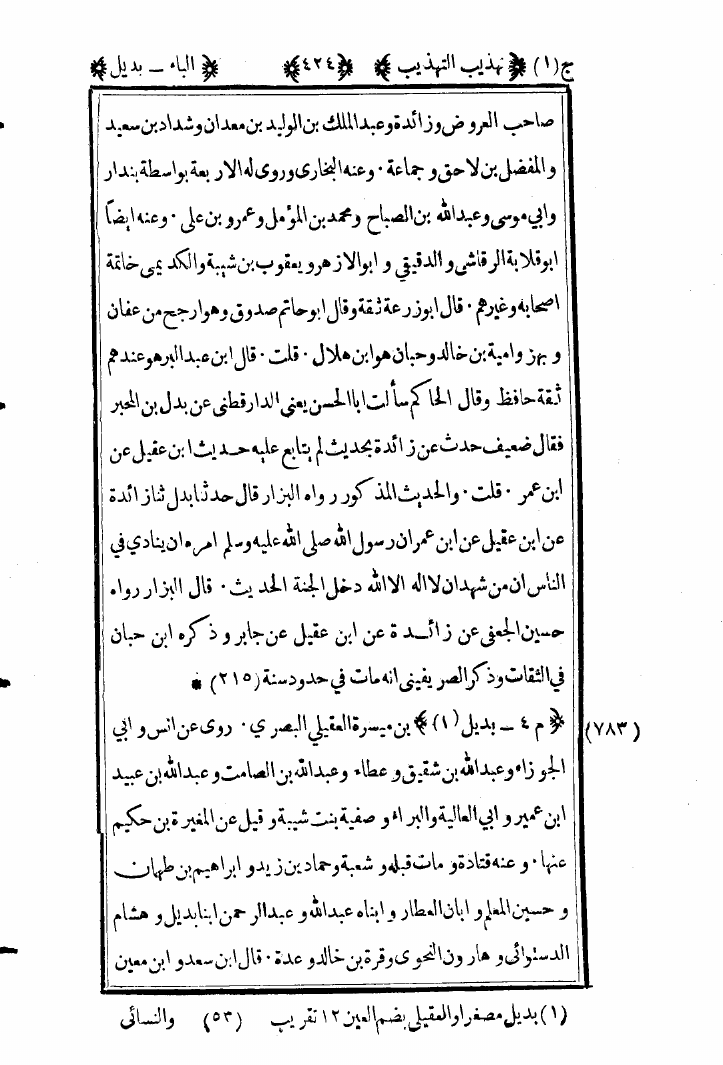 ج(١) ﴿تهذيب التهذيب﴾ ﴿٤٢٤﴾ ﴿الباء – بديل﴾
صاحب العروض وزائدة وعبد الملك بن الوليد بن معدان وشداد بن سعيد
والمفضل بن لاحق وجماعة ٠ وعنه البخارى وروى له الاربعة بواسطة بندار
وابي موسى وعبد الله بن الصباح ومحمد بن المؤمل وعمرو بن على ٠ وعنه ايضاً
ابو قلابة الرقاشى والدقيقي و ابو الازهر و يعقوب بن شيبة والكديمى خاتمة
اصحابه وغيرهم ٠ قال ابو زرعة ثقة وقال ابو حاتم صدوق وهو ارجح من عفان
و بهز وامية بن خالد وحبان هو ابن هلال ٠ قلت ٠ قال ابن عبد البر هو عندهم
ثقة حافظ وقال الحاكم سألت ابا الحسن يعنى الدارقطنى عن بدل بن المحبر
فقال ضعيف حدث عن زائدة بحديث لم يتابع عليه حديث ابن عقيل عن
ابن عمر ٠ قلت ٠ والحديث المذكور رواه البزار قال حدثنا بدل ثنا زائدة
عن ابن عقيل عن ابن عمر ان رسول الله صلى الله عليه وسلم امره ان ينادي في
الناس ان من شهد ان لا اله الا الله دخل الجنة الحديث ٠ قال البزار رواه
حسين الجعفى عن زائدة عن ابن عقيل عن جابر و ذكره ابن حبان
في الثقات وذكر الصريفينى انه مات في حدود سنة (٢١٥) *
﴿م ٤ – بديل (١)﴾ بن ميسرة العقيلي البصري ٠ روى عن انس و ابي (٧٨٣)
الجوزاء وعبد الله بن شقيق و عطاء وعبد الله بن الصامت و عبد الله بن عبيد
ابن عمير و ابي العالية والبراء و صفية بنت شيبة و قيل عن المغيرة بن حكيم
عنها ٠ و عنه قتادة و مات قبله و شعبة وحماد بن زيد و ابراهيم بن طهمان
و حسين المعلم و ابان العطار و ابناه عبد الله و عبد الرحمن ابنا بديل و هشام
الدستوائى و هارون النحوى وقرة بن خالد و عدة ٠ قال ابن سعد و ابن معين
(١) بديل مصغرا والعقيلى بضم العين ١٢ تقريب (٥٣) والنسائى